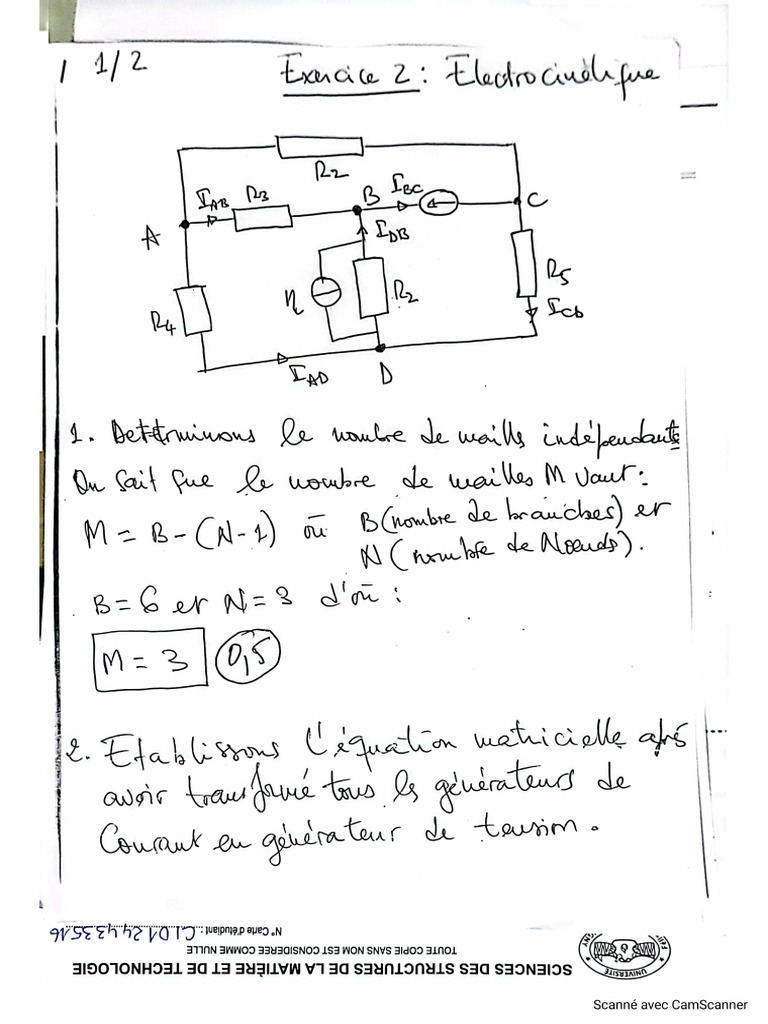 1/2
Exercice 2 : Electrocinétique
R2
IAB R3 B IBC
C
A
IDB
R4 η R2 R5
ICD
IAD D
1. Dettrminons le nombre de maills indépendants
On sait que le nombre de mailles M vaut :
M = B - (N-1) où B (nombre de branches) et
N (nombre de Noeuds).
B = 6 et N = 3 d'où :
M = 3 0,5
2. Etablissons l'équation matricielle après
avoir transformé tous les générateurs de
Courant en générateur de tension.
N° Carte d'étudiant : CI0124433516
TOUTE COPIE SANS NOM EST CONSIDEREE COMME NULLE
SCIENCES DES STRUCTURES DE LA MATIÈRE ET DE TECHNOLOGIE
UNIVERSITÉ
Scanné avec CamScanner